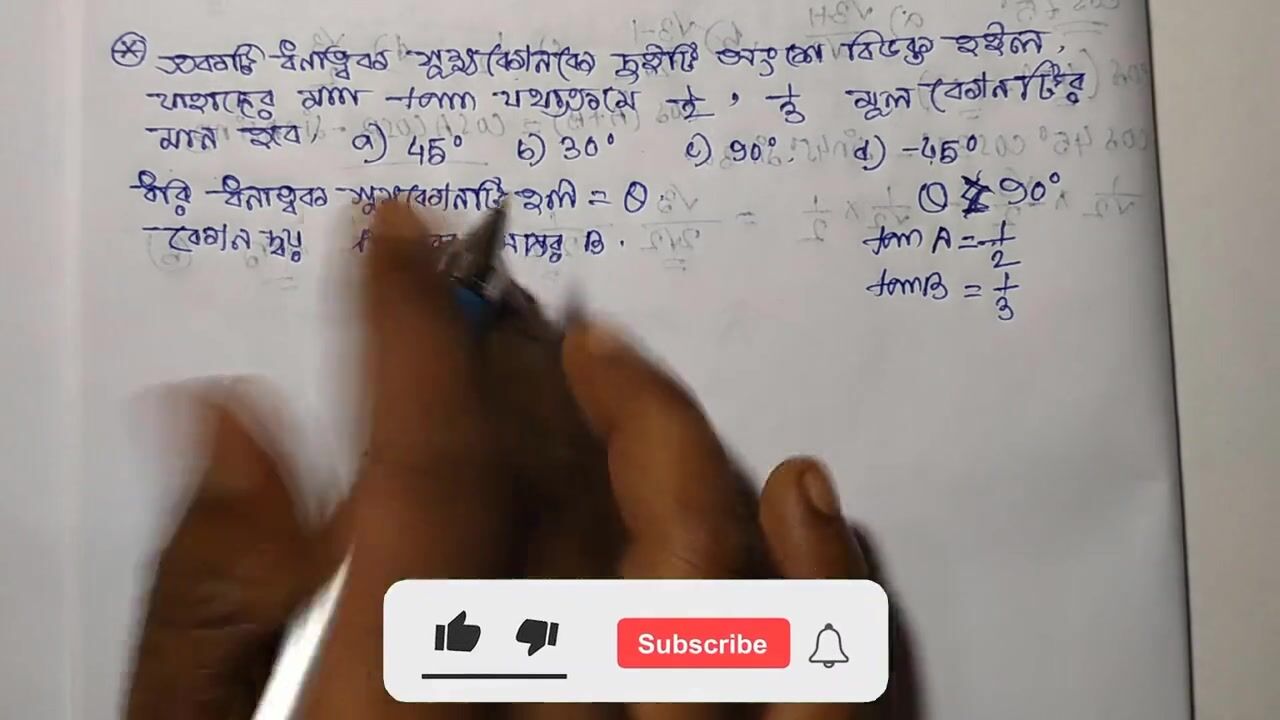 * একটি ধনাত্মক সূক্ষ্মকোনকে দুইটি অংশে বিভক্ত হইল,
যাহাদের মান tan যথাক্রমে 1/2, 1/3 মূল কোনটির
মান হবে, a) 45° b) 30° c) 90°. d) -45°
ধরি ধনাত্মক সূক্ষ্মকোনটি হলি = θ
θ 90°
কোন দ্বয় B.
tan A = 1/2
tan B = 1/3
Subscribe